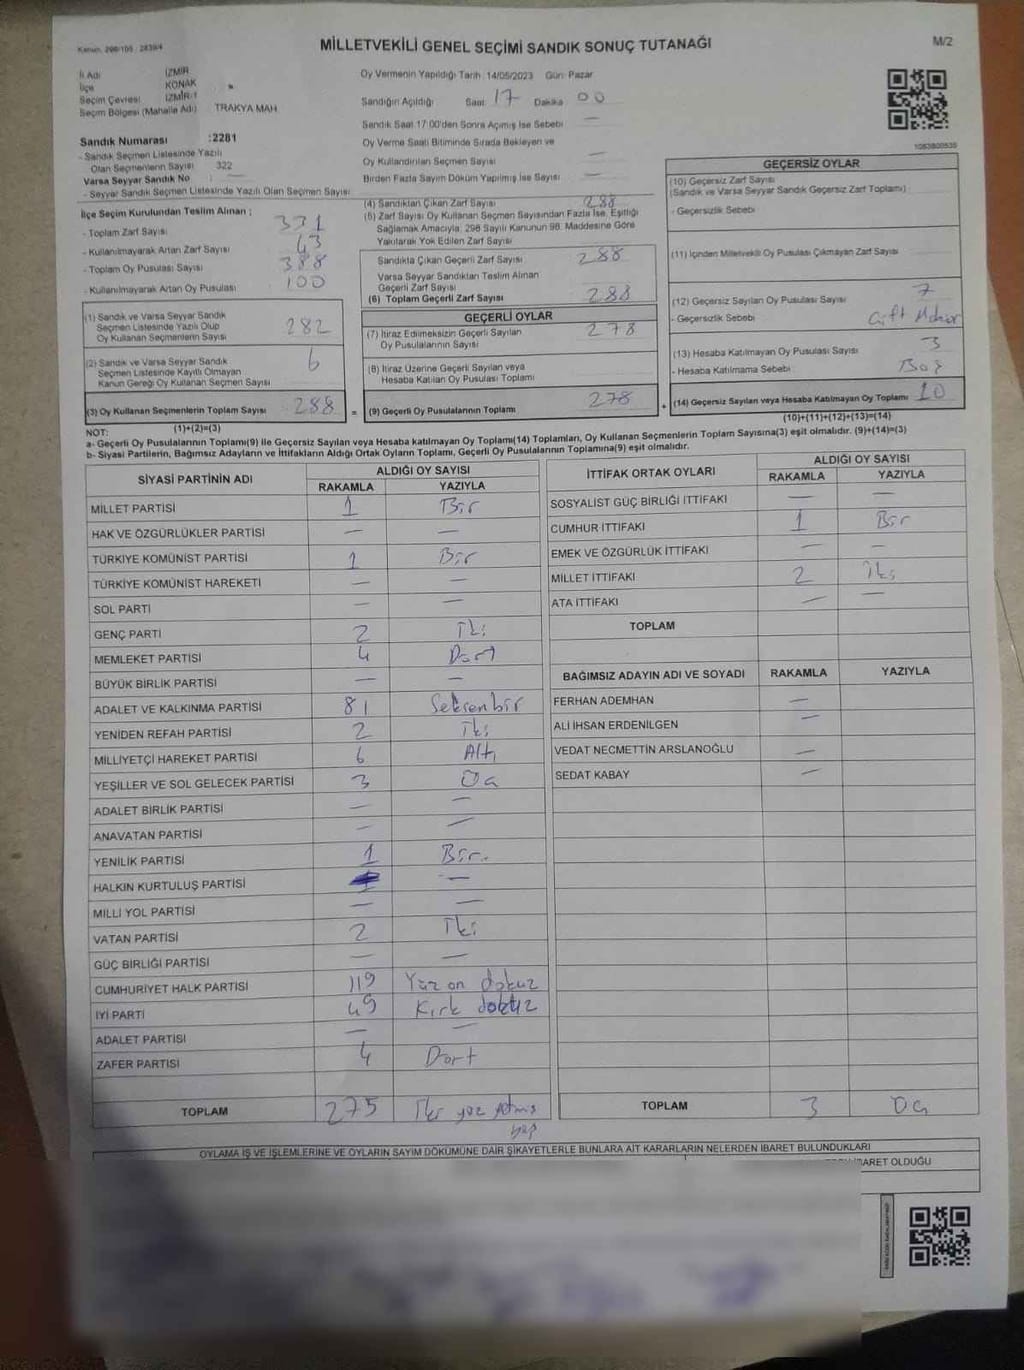 Kanun, 298/105 : 2839/4
MİLLETVEKİLİ GENEL SEÇİMİ SANDIK SONUÇ TUTANAĞI
M/2
İl Adı İZMİR
İlçe KONAK
Seçim Çevresi İZMİR-1
Seçim Bölgesi (Mahalle Adı) TRAKYA MAH
Sandık Numarası :2281
- Sandık Seçmen Listesinde Yazılı
Olan Seçmenlerin Sayısı 322
Varsa Seyyar Sandık No : —
- Seyyar Sandık Seçmen Listesinde Yazılı Olan Seçmen Sayısı :
Oy Vermenin Yapıldığı Tarih :14/05/2023 Gün: Pazar
Sandığın Açıldığı Saat 17 Dakika 00
Sandık Saat 17:00'den Sonra Açımış İse Sebebi —
Oy Verme Saati Bitiminde Sırada Bekleyen ve
Oy Kullandırılan Seçmen Sayısı —
Birden Fazla Sayım Döküm Yapılmış İse Sayısı —
1083800535
İlçe Seçim Kurulundan Teslim Alınan ;
- Toplam Zarf Sayısı 331
- Kullanılmayarak Artan Zarf Sayısı 43
- Toplam Oy Pusulası Sayısı 388
- Kullanılmayarak Artan Oy Pusulası 100
(1) Sandık ve Varsa Seyyar Sandık
Seçmen Listesinde Yazılı Olup
Oy Kullanan Seçmenlerin Sayısı 282
(2) Sandık ve Varsa Seyyar Sandık
Seçmen Listesinde Kayıtlı Olmayan
Kanun Gereği Oy Kullanan Seçmen Sayısı 6
(3) Oy Kullanan Seçmenlerin Toplam Sayısı 288
(1)+(2)=(3)
(4) Sandıktan Çıkan Zarf Sayısı 288
(5) Zarf Sayısı Oy Kullanan Seçmen Sayısından Fazla İse, Eşitliği
Sağlamak Amacıyla, 298 Sayılı Kanunun 98. Maddesine Göre
Yakılarak Yok Edilen Zarf Sayısı
Sandıkta Çıkan Geçerli Zarf Sayısı 288
Varsa Seyyar Sandıktan Teslim Alınan
Geçerli Zarf Sayısı
(6) Toplam Geçerli Zarf Sayısı 288
GEÇERLİ OYLAR
(7) İtiraz Edilmeksizin Geçerli Sayılan
Oy Pusulalarının Sayısı 278
(8) İtiraz Üzerine Geçerli Sayılan veya
Hesaba Katılan Oy Pusulası Toplamı
= (9) Geçerli Oy Pusulalarının Toplamı 278
GEÇERSİZ OYLAR
(10) Geçersiz Zarf Sayısı
(Sandık ve Varsa Seyyar Sandık Geçersiz Zarf Toplamı)
- Geçersizlik Sebebi
(11) İçinden Milletvekili Oy Pusulası Çıkmayan Zarf Sayısı
(12) Geçersiz Sayılan Oy Pusulası Sayısı 7
- Geçersizlik Sebebi Çift Mühür
(13) Hesaba Katılmayan Oy Pusulası Sayısı 3
- Hesaba Katılmama Sebebi Boş
+ (14) Geçersiz Sayılan veya Hesaba Katılmayan Oy Toplamı 10
(10)+(11)+(12)+(13)=(14)
NOT:
a- Geçerli Oy Pusulalarının Toplamı(9) ile Geçersiz Sayılan veya Hesaba katılmayan Oy Toplamı(14) Toplamları, Oy Kullanan Seçmenlerin Toplam Sayısına(3) eşit olmalıdır. (9)+(14)=(3)
b- Siyasi Partilerin, Bağımsız Adayların ve İttifakların Aldığı Ortak Oyların Toplamı, Geçerli Oy Pusulalarının Toplamına(9) eşit olmalıdır.
SİYASİ PARTİNİN ADI ALDIĞI OY SAYISI
RAKAMLA YAZIYLA
MİLLET PARTİSİ 1 Bir
HAK VE ÖZGÜRLÜKLER PARTİSİ — —
TÜRKİYE KOMÜNİST PARTİSİ 1 Bir
TÜRKİYE KOMÜNİST HAREKETİ — —
SOL PARTİ — —
GENÇ PARTİ 2 İki
MEMLEKET PARTİSİ 4 Dört
BÜYÜK BİRLİK PARTİSİ — —
ADALET VE KALKINMA PARTİSİ 81 Seksen bir
YENİDEN REFAH PARTİSİ 2 İki
MİLLİYETÇİ HAREKET PARTİSİ 6 Altı
YEŞİLLER VE SOL GELECEK PARTİSİ 3 Üç
ADALET BİRLİK PARTİSİ — —
ANAVATAN PARTİSİ — —
YENİLİK PARTİSİ 1 Bir.
HALKIN KURTULUŞ PARTİSİ —
MİLLİ YOL PARTİSİ — —
VATAN PARTİSİ 2 İki
GÜÇ BİRLİĞİ PARTİSİ — —
CUMHURİYET HALK PARTİSİ 119 Yüz on dokuz
İYİ PARTİ 49 Kırk dokuz
ADALET PARTİSİ — —
ZAFER PARTİSİ 4 Dört
TOPLAM 275 İki yüz yetmiş
beş
İTTİFAK ORTAK OYLARI ALDIĞI OY SAYISI
RAKAMLA YAZIYLA
SOSYALİST GÜÇ BİRLİĞİ İTTİFAKI — —
CUMHUR İTTİFAKI 1 Bir
EMEK VE ÖZGÜRLÜK İTTİFAKI — —
MİLLET İTTİFAKI 2 İki
ATA İTTİFAKI — —
TOPLAM
BAĞIMSIZ ADAYIN ADI VE SOYADI RAKAMLA YAZIYLA
FERHAN ADEMHAN —
ALİ İHSAN ERDENİLGEN —
VEDAT NECMETTİN ARSLANOĞLU —
SEDAT KABAY —
TOPLAM 3 Üç
OYLAMA İŞ VE İŞLEMLERİNE VE OYLARIN SAYIM DÖKÜMÜNE DAİR ŞİKAYETLERLE BUNLARA AİT KARARLARIN NELERDEN İBARET BULUNDUKLARI
İBARET OLDUĞU